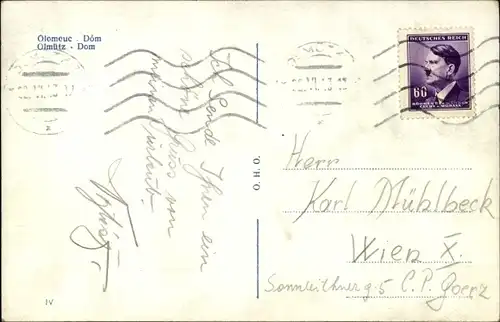 Olomouc - Dóm
Olmütz - Dom
Ich Sende Ihnen ein
schön Gruss von
meinen Urlaub.
O. H. O.
IV
DEUTSCHES REICH
60
BÖHMEN UND MÄHREN
Herr
Karl Mühlbeck
Wien X.
Sonnleithnerg. 5 C.P. Goerz